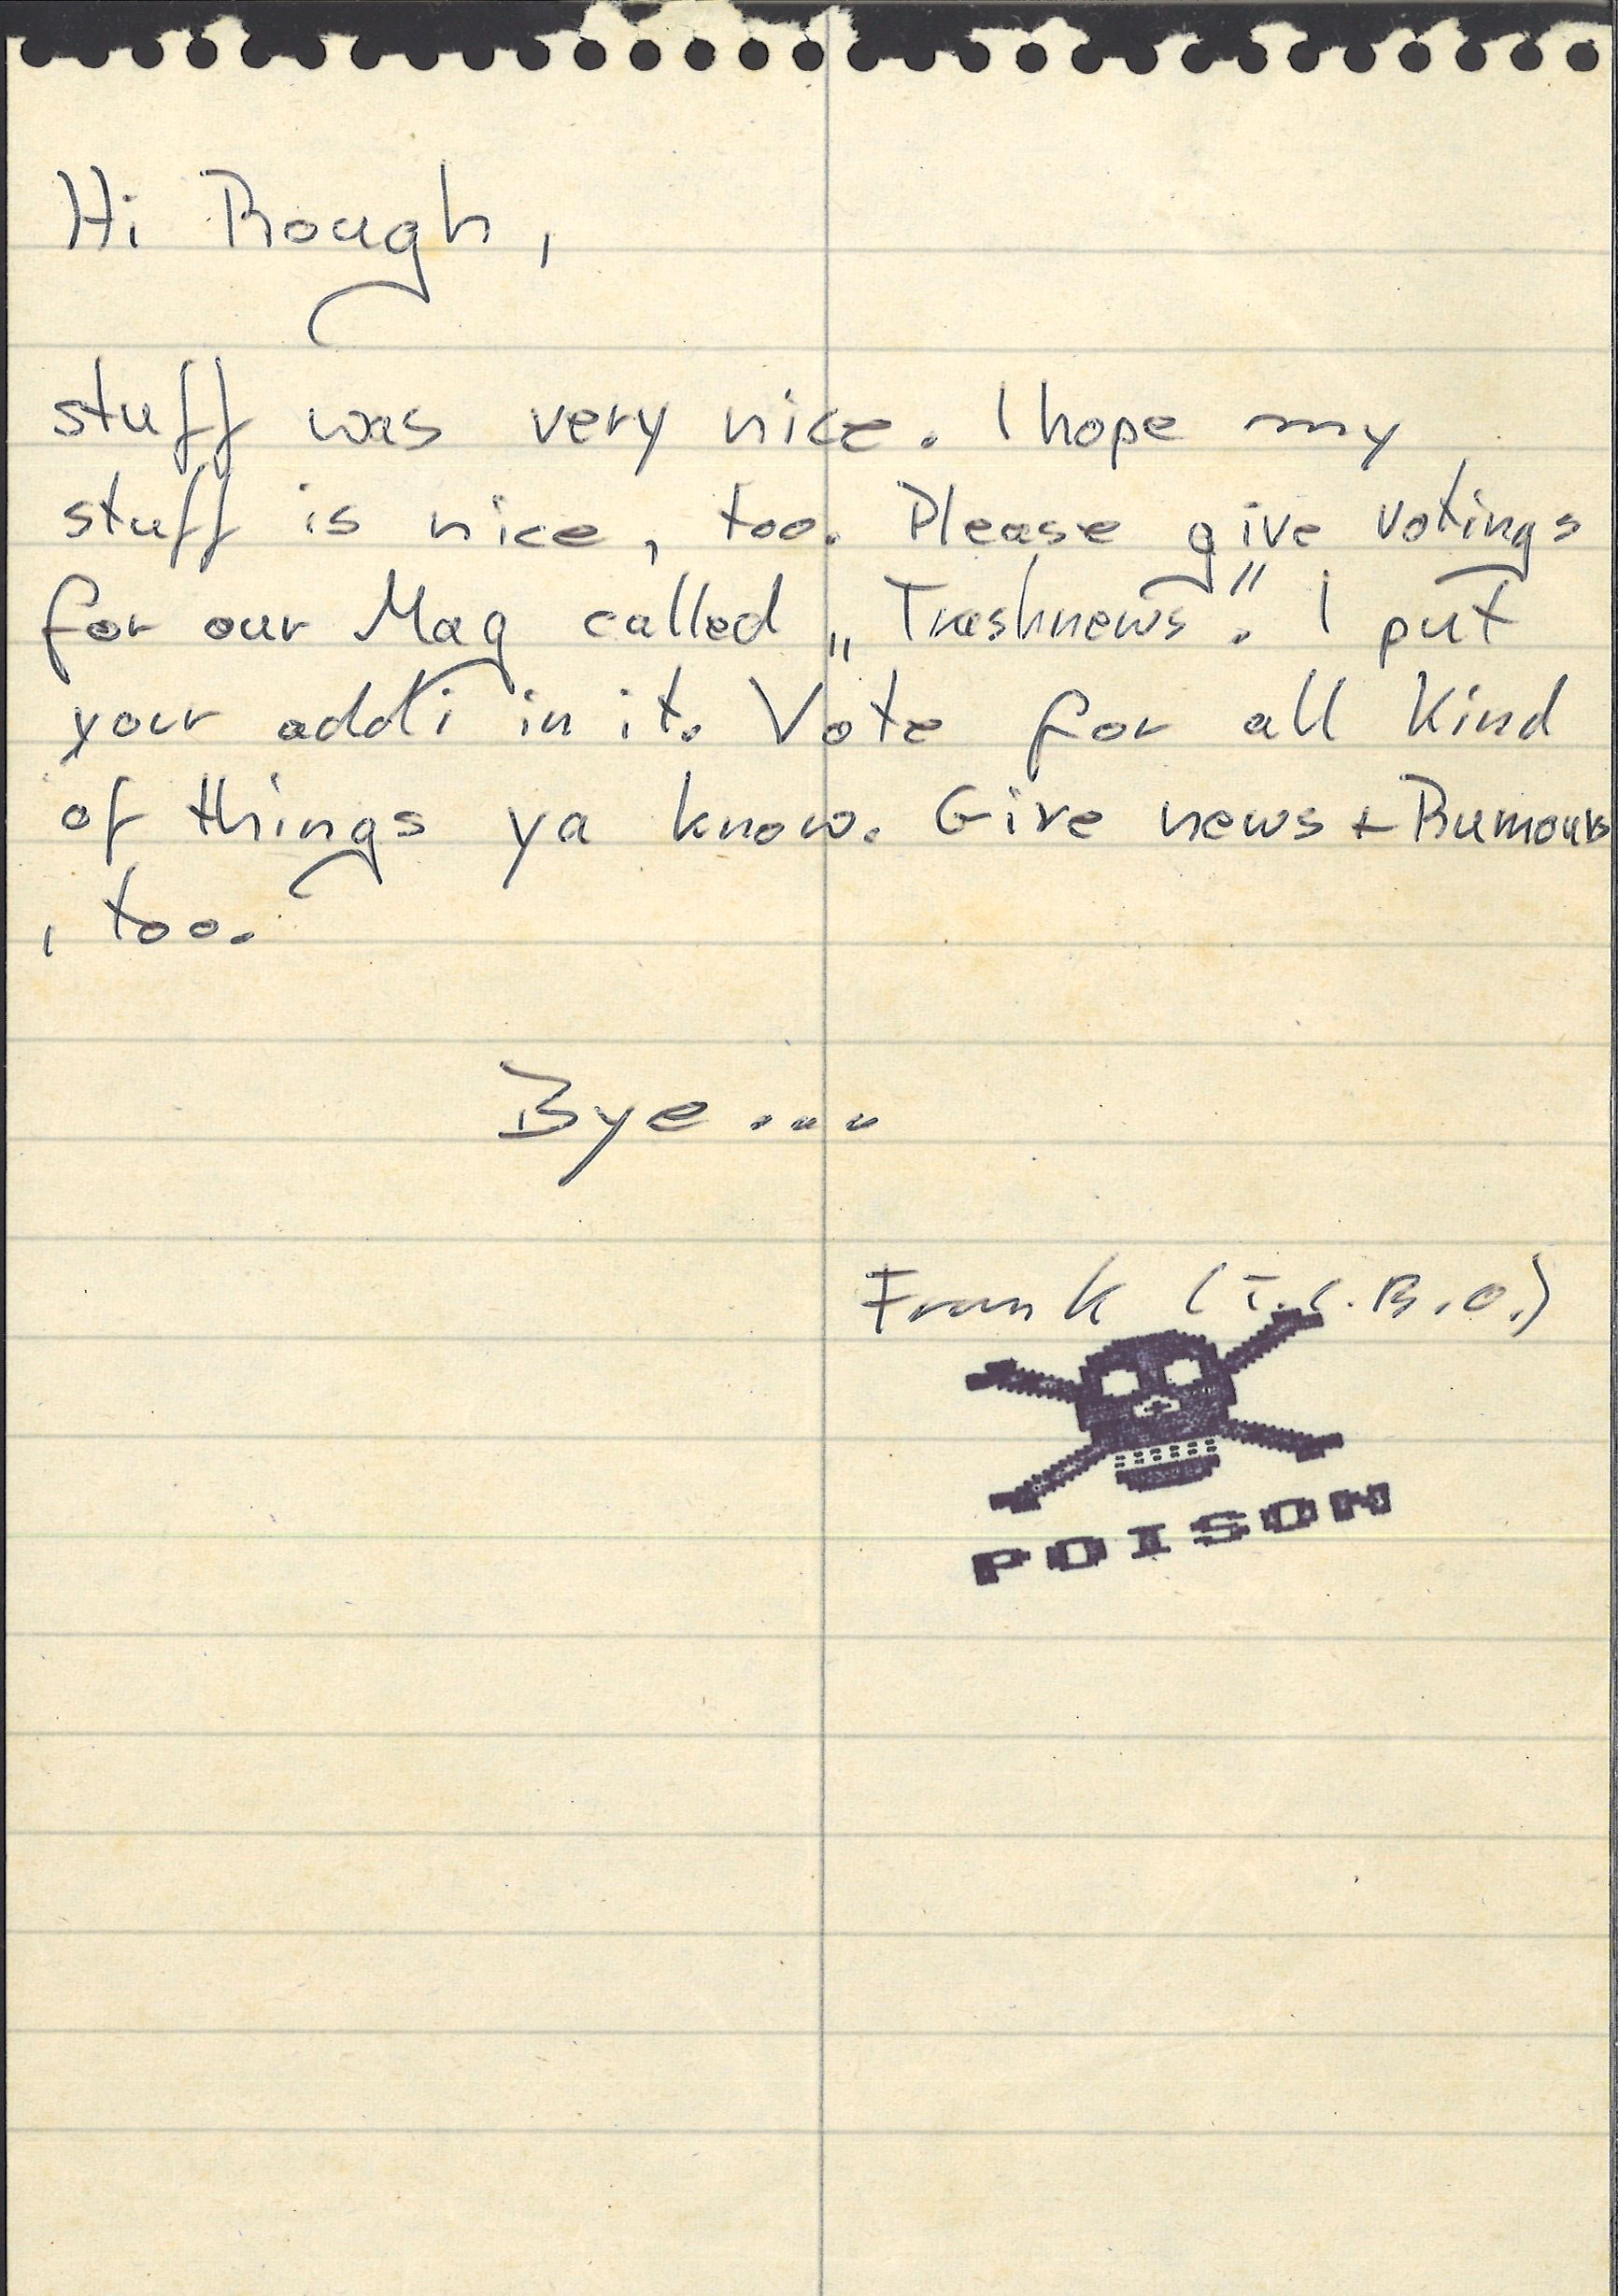 Hi Rough,
stuff was very nice. I hope my
stuff is nice, too. Please give votings
for our Mag called „Trashnews". I put
your addi in it. Vote for all kind
of things ya know. Give news + Rumours
, too.
Bye...
Frank (T.C.B.O.)
POISON